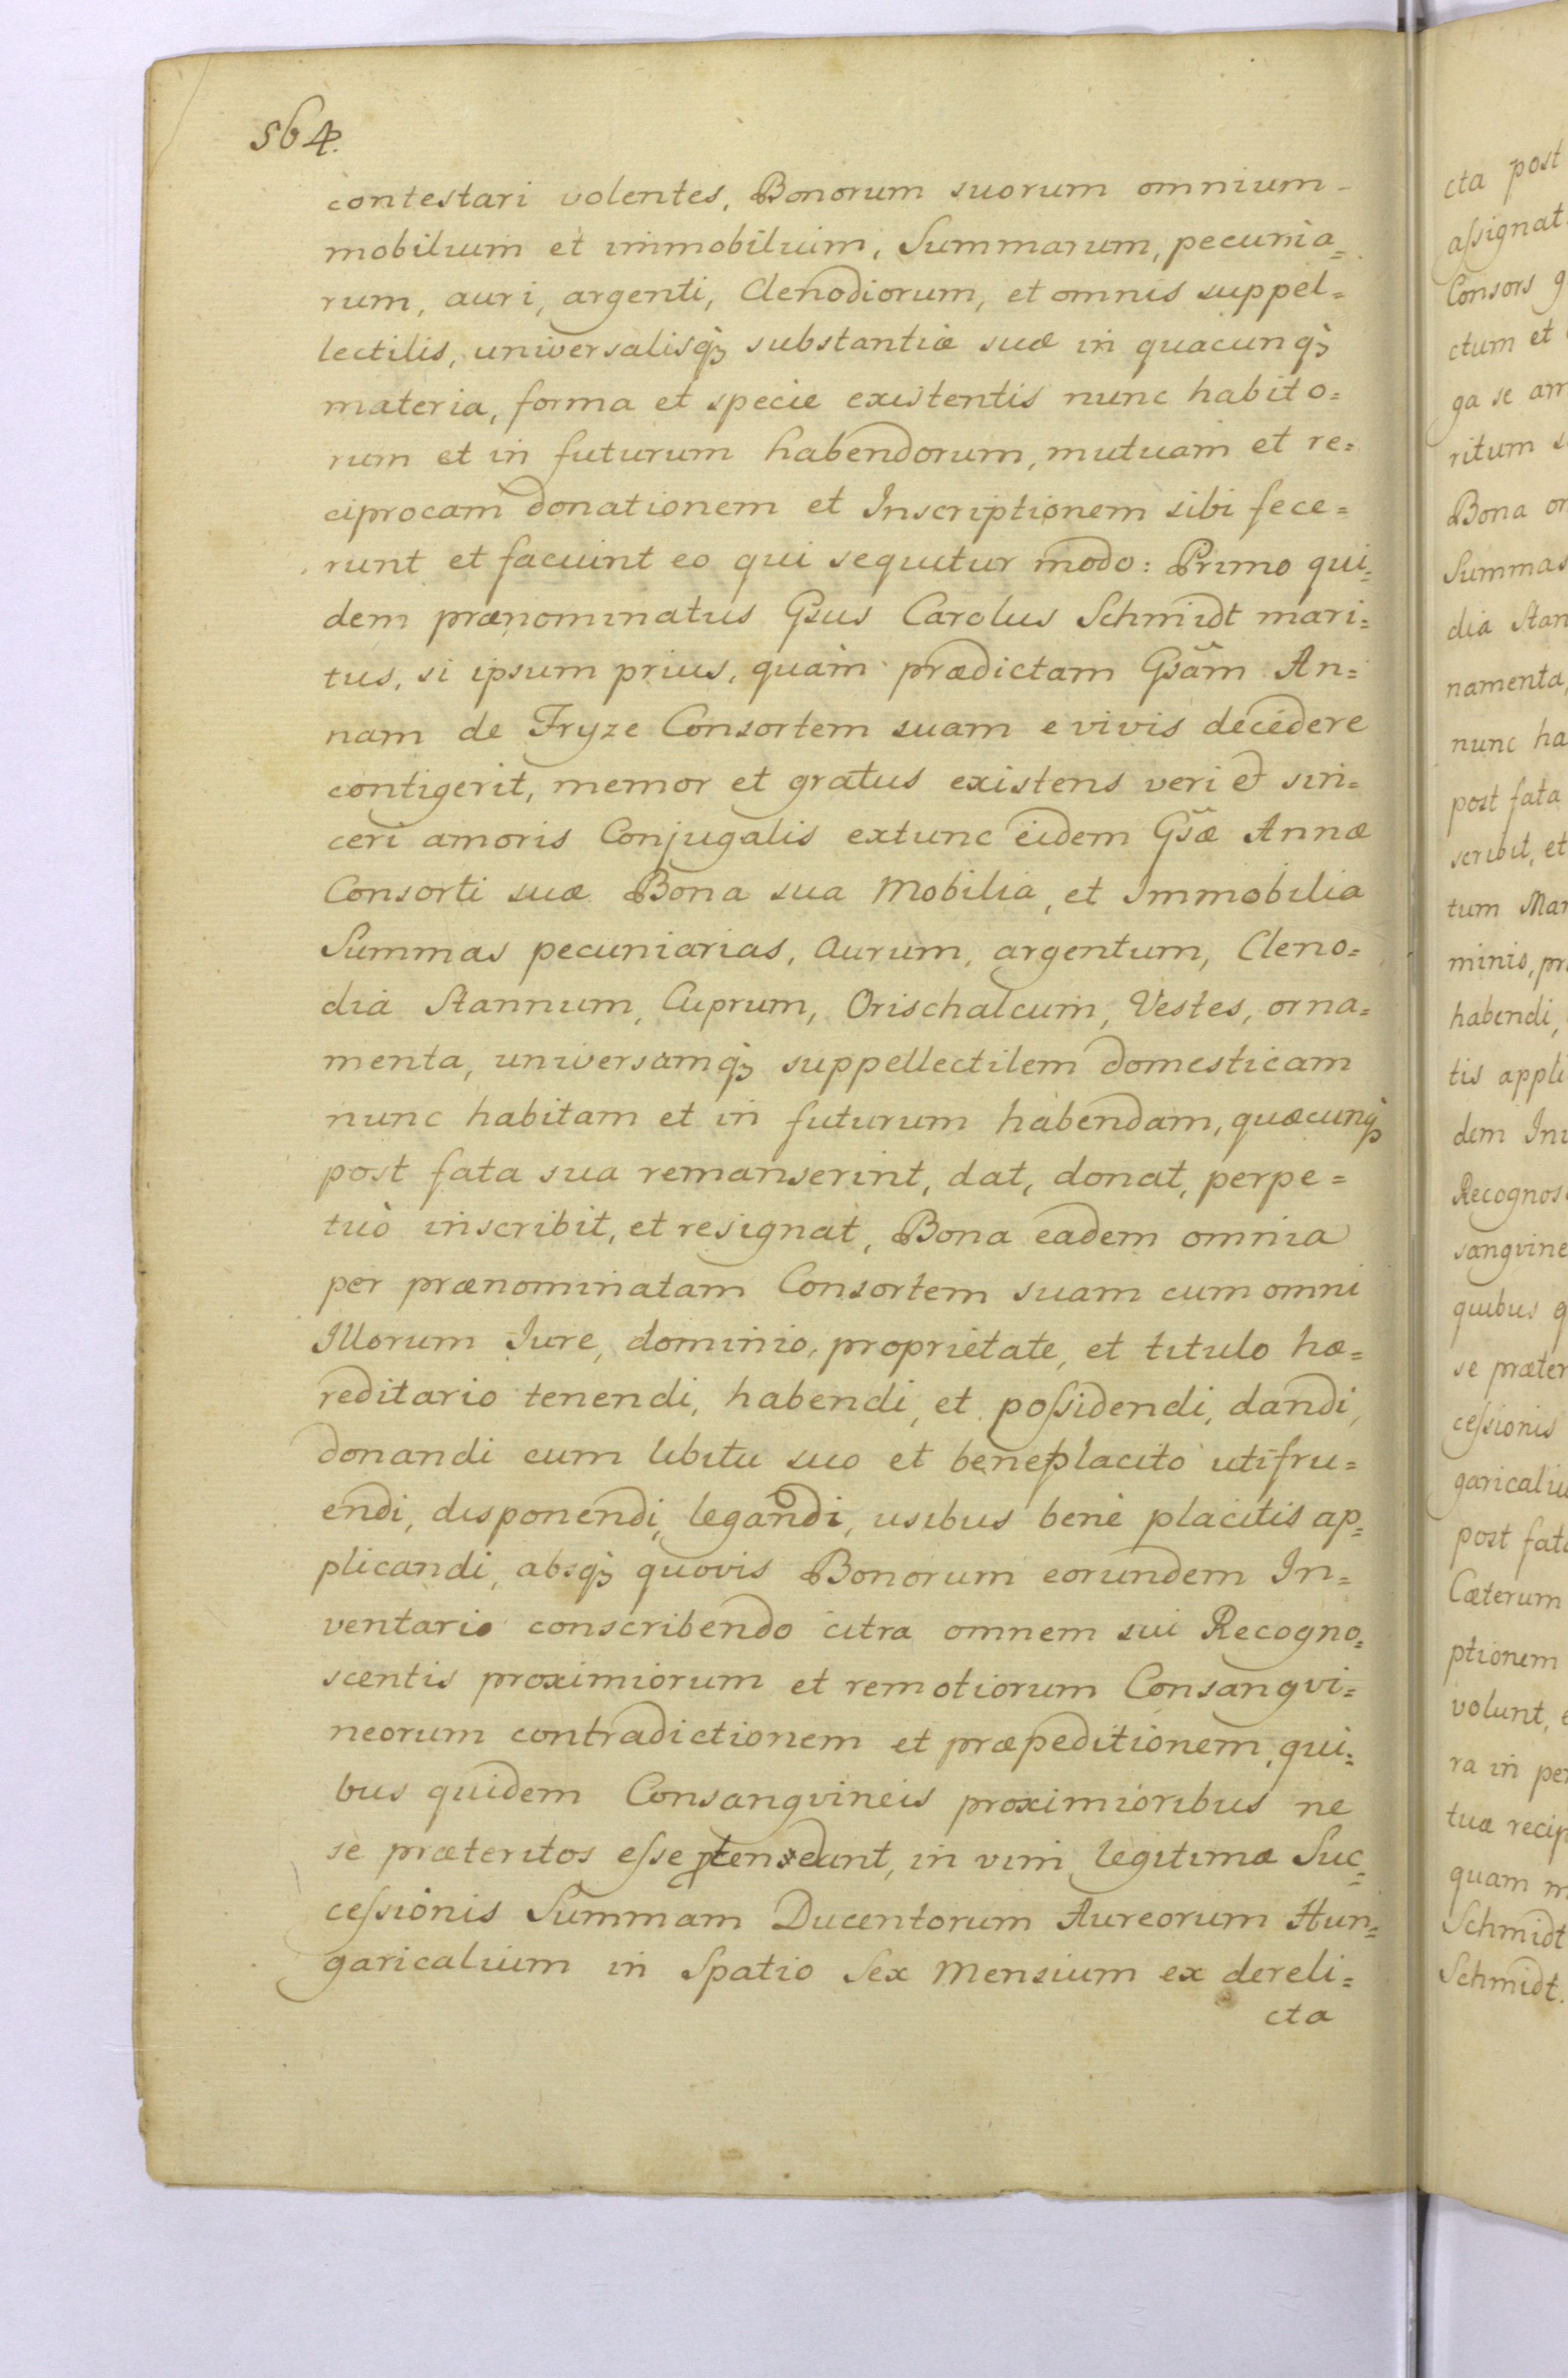 564.
contestari volentes, Bonorum suorum omnium
mobilium et immobilium, Summarum, pecunia=
rum, auri, argenti, Clenodiorum, et omnis suppel=
lectilis, universalisqꝫ substantiæ suæ in quacunqꝫ
materia, forma et specie existentis nunc habito=
rum et in futurum habendorum, mutuam et re=
ciprocam donationem et Inscriptionem sibi fece=
runt et faciunt eo qui sequitur modo: Primo qui=
dem prænominatus Gsus Carolus Schmidt mari=
tus, si ipsum prius, quàm prædictam Gsam An=
nam de Fryze Consortem suam e vivis decedere
contigerit, memor et gratus existens veri et sin=
ceri amoris Conjugalis extunc eidem Gsæ Annæ
Consorti suæ Bona sua Mobilia, et Immobilia
Summas pecuniarias, Aurum, argentum, Cleno=
dia Stannum, Cuprum, Orischalcum, Vestes, orna=
menta, universamqꝫ suppellectilem domesticam
nunc habitam et in futurum habendam, quæcunqꝫ
post fata sua remanserint, dat, donat, perpe=
tuò inscribit, et resignat, Bona eadem omnia
per prænominatam Consortem suam cum omni
Illorum Iure, dominio, proprietate, et titulo hæ=
reditario tenendi, habendi, et poſsidendi, dandi,
donandi cum libitu suo et beneplacito utifru=
endi, disponendi, legandi, usibus bene placitis ap=
plicandi, absqꝫ quovis Bonorum eorundem In=
ventario conscribendo citra omnem sui Recogno=
scentis proximiorum et remotiorum Consangvi=
neorum contradictionem et præpeditionem, qui=
bus quidem Consangvineis proximioribus ne
se præteritos eſse prætendant, in vim legitimæ Suc=
ceſsionis Summam Ducentorum Aureorum Hun=
garicalium in Spatio Sex Mensium ex dereli=
cta
cta post
aſsignat
Consors
ctum et
ga se am
ritum
Bona
Summas
dia Stan
namenta,
nunc ha
post fata
scribit, et
tum Mar
minio, pr
habendi,
tis appli
dem Inv
Recognos
sangvine
quibus
se præter
ceſsionis
garicaliu
post fata
Cæterum
ptionem
volunt,
ra in per
tuæ recip
quam m
Schmidt
Schmidt.